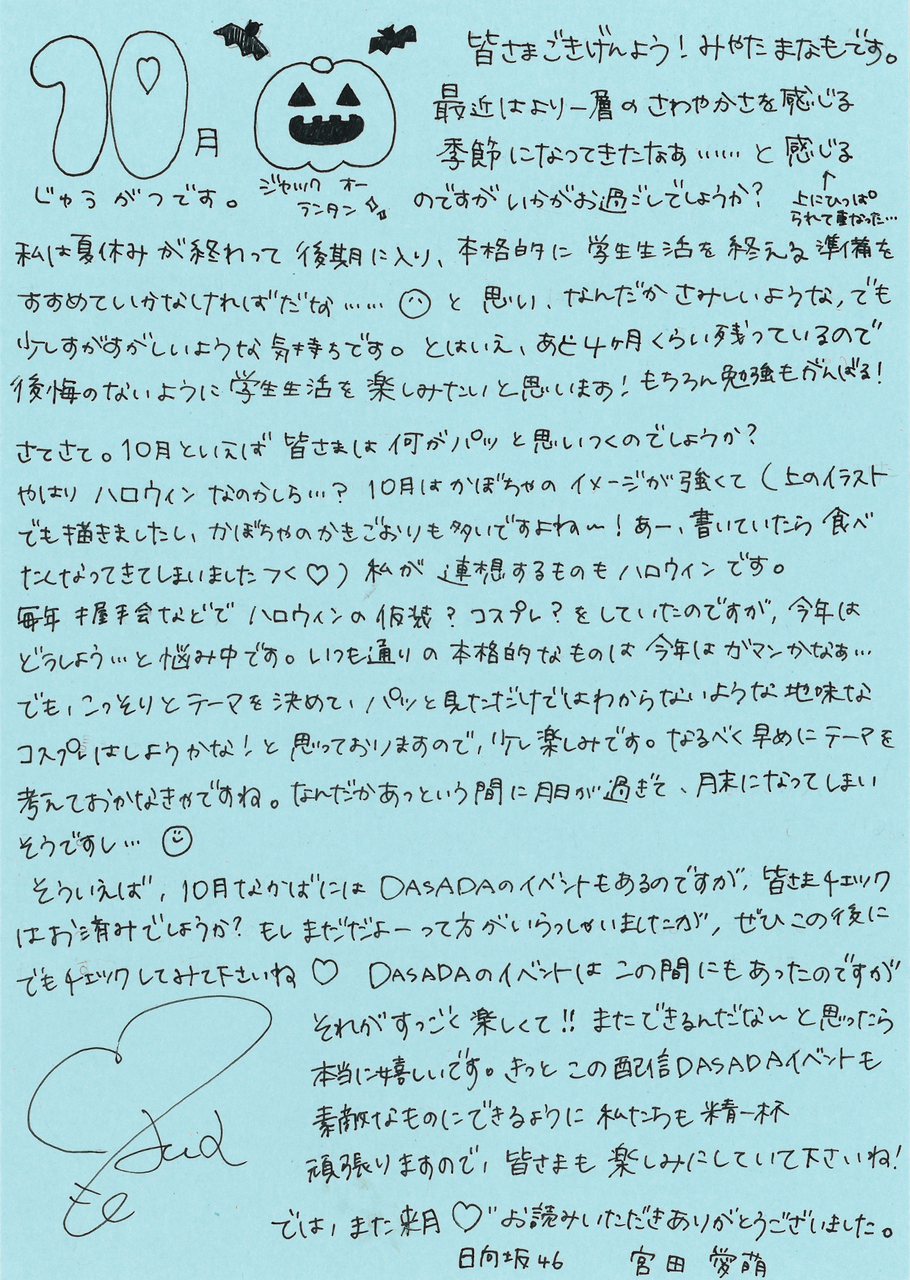 10月
じゅうがつです。
ジャック オー
ランタン
皆さまごきげんよう！みやた まなもです。
最近はより一層の さわやかさを感じる
季節になってきたなぁ……と 感じる
のですが いかがお過ごしでしょうか？
↑
上にひっぱ
られて重なった…
私は夏休みが終わって 後期に入り、本格的に 学生生活を 終える 準備を
すすめていかなければだな…… と 思い、なんだか さみしいような、でも
少しすがすがしいような 気持ちです。とはいえ、あと4ヶ月くらい残っているので
後悔のないように 学生生活を 楽しみたいと思います！もちろん勉強もがんばる！
さてさて。10月といえば 皆さまは 何がパッと思いつくのでしょうか？
やはり ハロウィン なのかしら…？ 10月はかぼちゃの イメージが 強くて（上のイラスト
でも描きましたし、かぼちゃのかきごおりも多いですよね〜！あー、書いていたら 食べ
たくなってきてしまいました つく♡）私が 連想するものも ハロウィンです。
毎年 握手会などで ハロウィンの 仮装？コスプレ？をしていたのですが、今年は
どうしよう…と悩み中です。いつも通りの 本格的なものは 今年は ガマンかなぁ…
でも、こっそりとテーマを決めて、パッと見ただけではわからないような 地味な
コスプレはしようかな！と 思っておりますので、少し楽しみです。なるべく早めにテーマを
考えておかなきゃですね。なんだかあっという間に月日が過ぎて、月末になってしまい
そうですし…
そういえば、10月なかばには DASADAのイベントもあるのですが、皆さまチェック
はお済みでしょうか？もし まだだよーって方がいらっしゃいましたが、ぜひこの後に
でもチェックしてみて下さいね♡ DASADAのイベントは この間にもあったのですが
それがすっごく 楽しくて!! またできるんだな〜と思ったら
本当に嬉しいです。きっと この配信DASADAイベントも
素敵なものにできるように 私たちも 精一杯
頑張りますので、皆さまも 楽しみにしていて下さいね！
では、また来月♡ お読みいただきありがとうございました。
日向坂46 宮田 愛萌